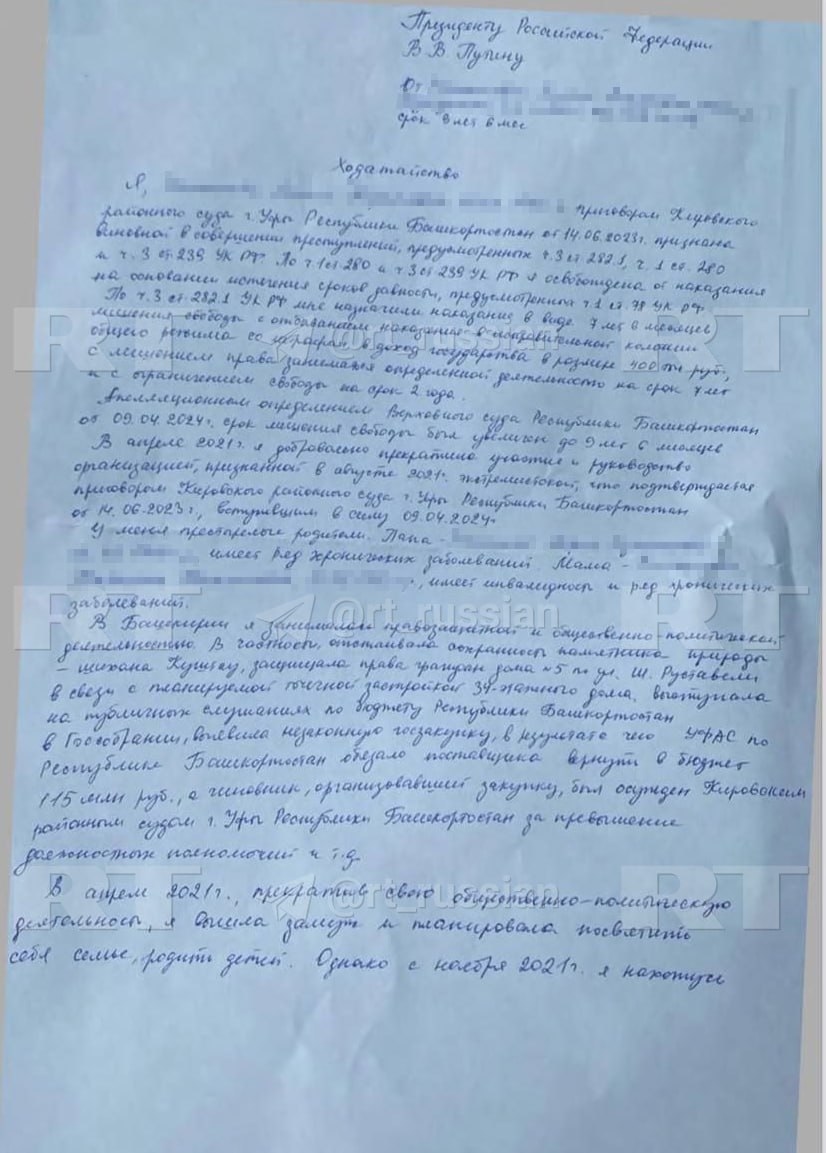 Президенту Российской Федерации
В.В. Путину
От
срок 9 лет 6 мес
Ходатайство
Я, приговором Кировского
районного суда г. Уфы Республики Башкортостан от 14.06.2023г. признана
виновной в совершении преступлений, предусмотренных ч.3 ст 282.1, ч. 1 ст. 280
и ч. 3 ст 239 УК РФ. По ч 1 ст 280 и ч 3 ст 239 УК РФ я освобождена от наказания
на основании истечения сроков давности, предусмотренных ч 1 ст. 78 УК РФ.
По ч. 3 ст. 282.1 УК РФ мне назначили наказание в виде 7 лет 6 месяцев
лишения свободы с отбыванием наказания в исправительной колонии
общего режима со штрафом в доход государства в размере 400 тыс руб.,
с лишением права заниматься определенной деятельностью на срок 7 лет
и с ограничением свободы на срок 2 года.
Апелляционным определением Верховного суда Республики Башкортостан
от 09.04.2024г. срок лишения свободы был увеличен до 9 лет 6 месяцев
В апреле 2021г. я добровольно прекратила участие и руководство
организацией, признанной в августе 2021г. экстремистской, что подтверждается
приговором Кировского районного суда г. Уфы Республики Башкортостан
от 14.06.2023г., вступившим в силу 09.04.2024г
У меня престарелые родители. Папа -
имеет ряд хронических заболеваний. Мама -
, имеет инвалидность и ряд хронических
заболеваний.
В Башкирии я занималась правозащитной и общественно-политической
деятельностью. В частности, отстаивала сохранность памятника природы
- шихана Куштау, защищала права граждан дома №5 по ул. Ш. Руставели
в связи с планируемой точечной застройкой 34-этажного дома, выступала
на публичных слушаниях по бюджету Республики Башкортостан
в Госсобрании, выявила незаконную госзакупку, в результате чего УФАС по
Республике Башкортостан обязало поставщика вернуть в бюджет
115 млн руб., а чиновник, организовавший закупку, был осужден Кировским
районным судом г. Уфы Республики Башкортостан за превышение
должностных полномочий и т.д.
В апреле 2021г., прекратив свою общественно-политическую
деятельность, я вышла замуж и планировала посвятить
себя семье, родить детей. Однако с ноября 2021г. я нахожусь
RT @rt_russian RT
RT @rt_russian RT
RT @rt_russian RT